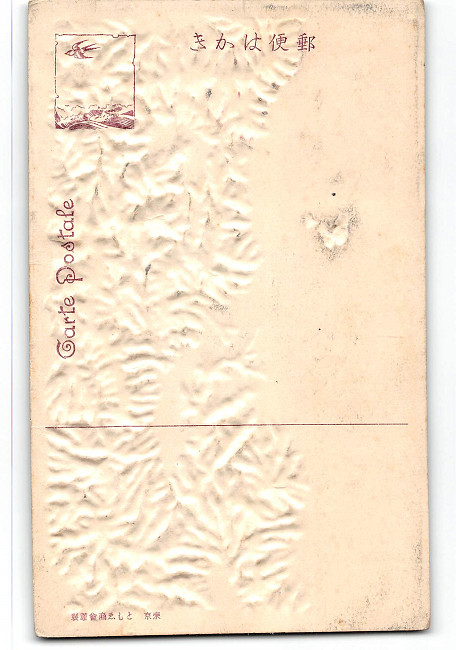 郵便はかき
Carte Postale
東京 としゑ商會謹製